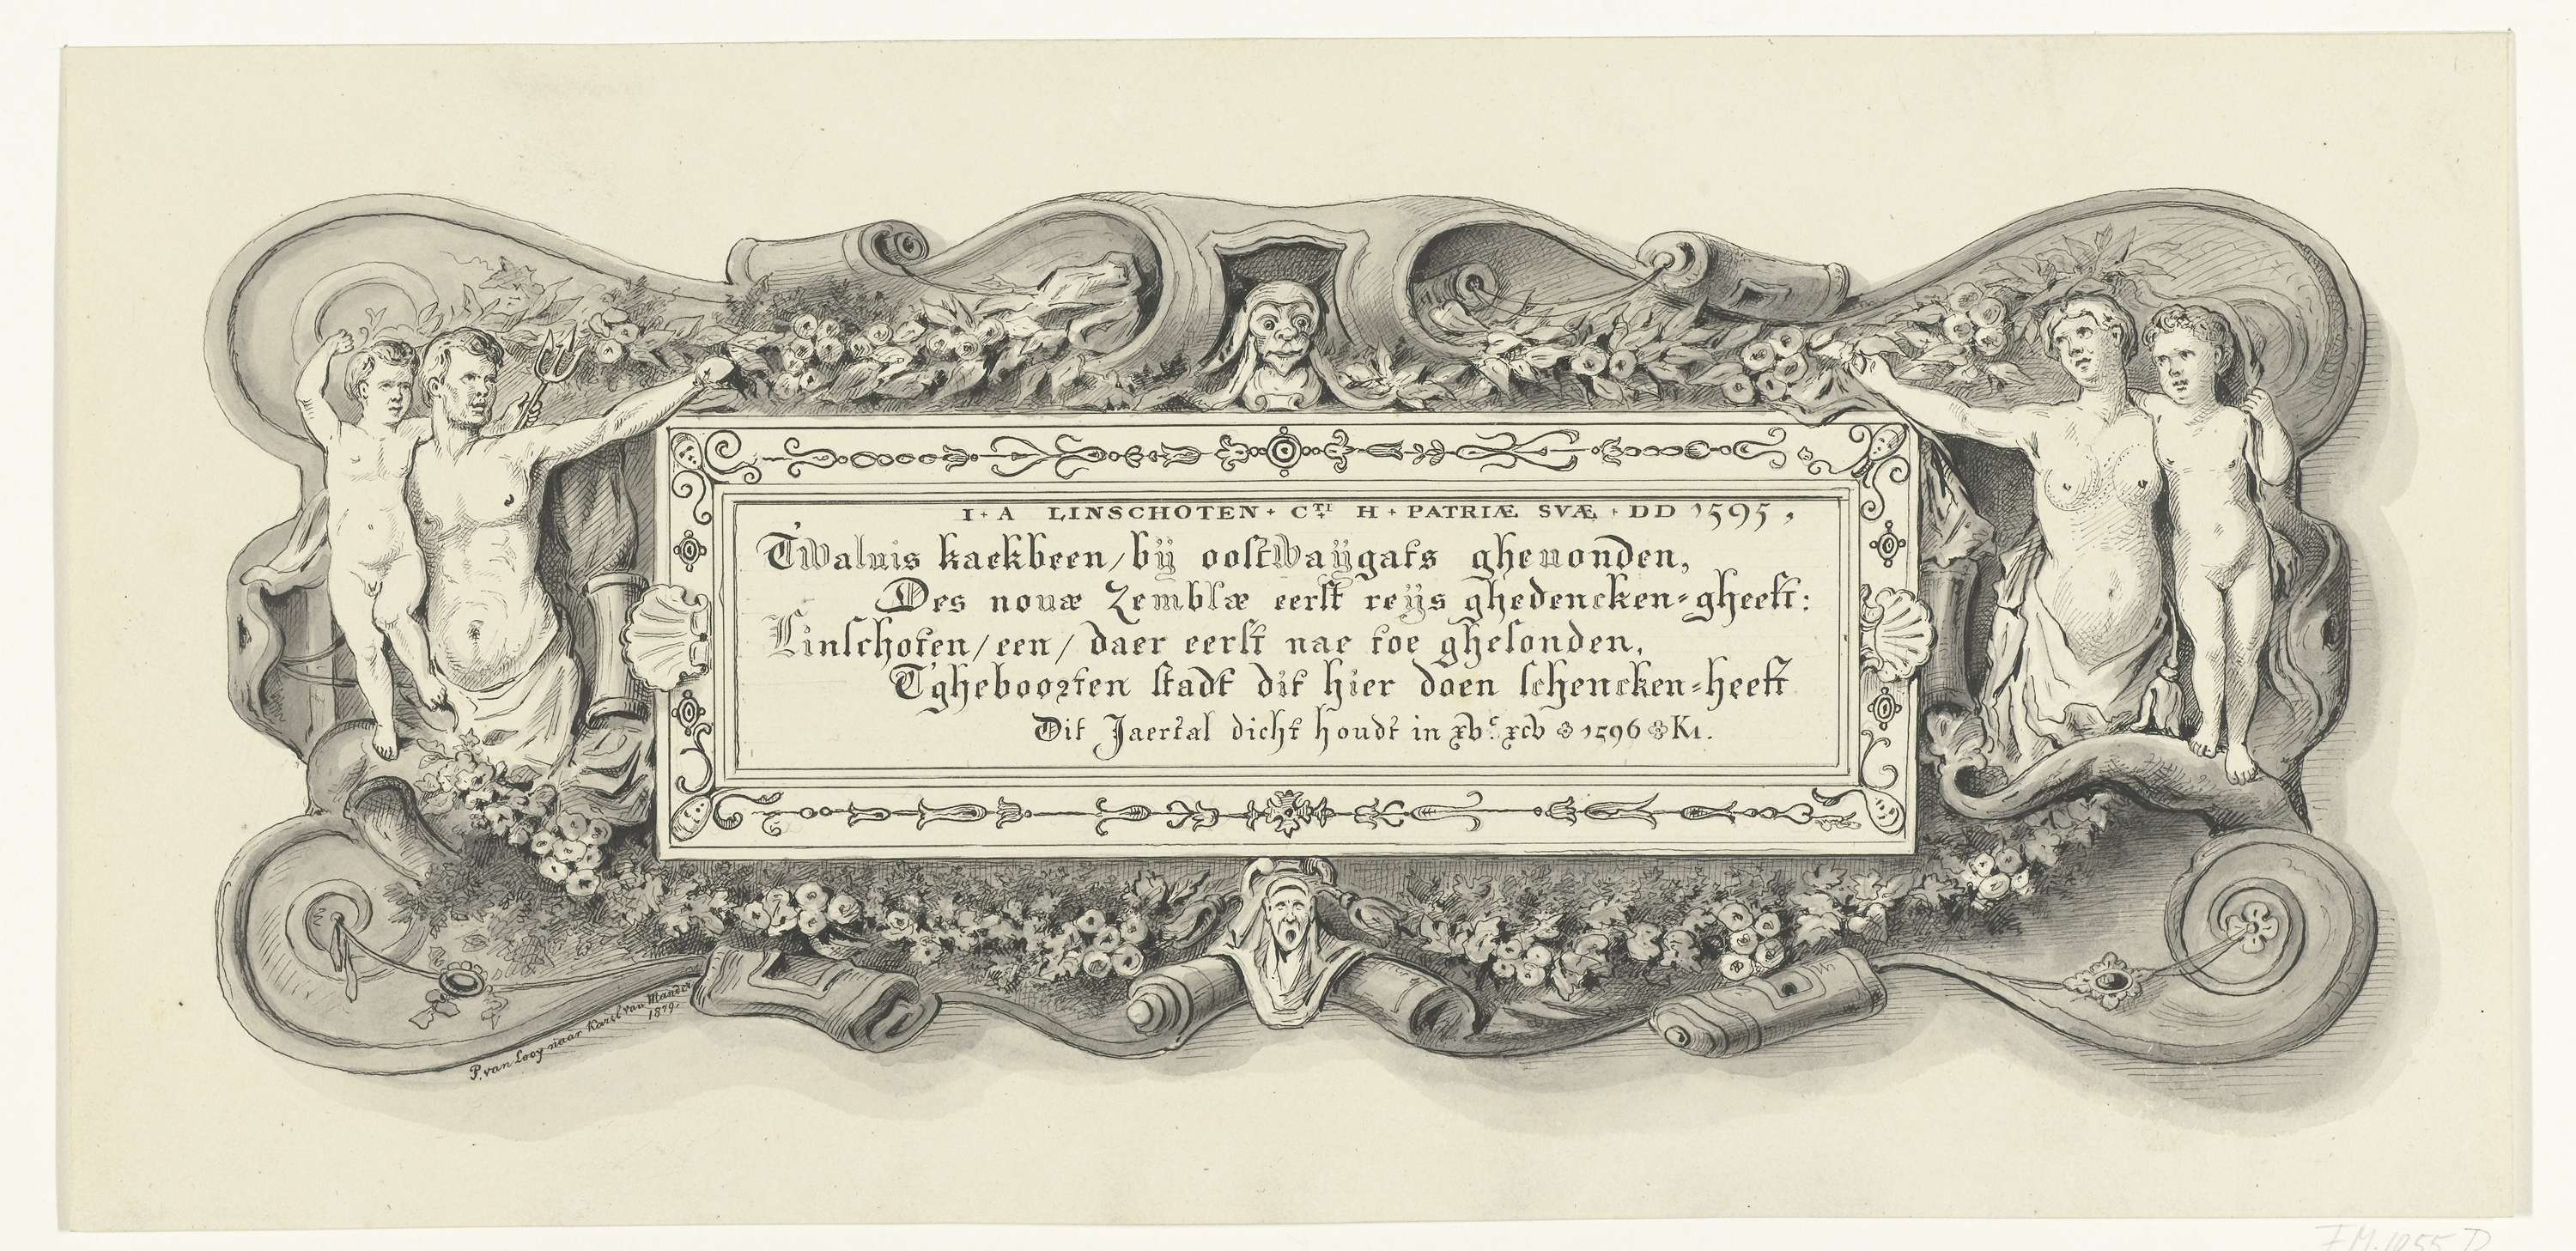 I + A LINSCHOTEN + CTI H + PATRIÆ SVÆ + DD 1595,
Twaluis kaekbeen/bij oostwaÿgats gheuonden,
Des nouæ Zemblæ eerst reijs ghedencken=gheeft:
Linschoten/een/daer eerst nae toe ghesonden,
T'gheboorten stadt dit hier doen schencken=heeft
Dit Jaertal dicht houdt in xvᶜ xcv 1596
P. van Looy naar Karel van Mander
1879.
FM.1055 D